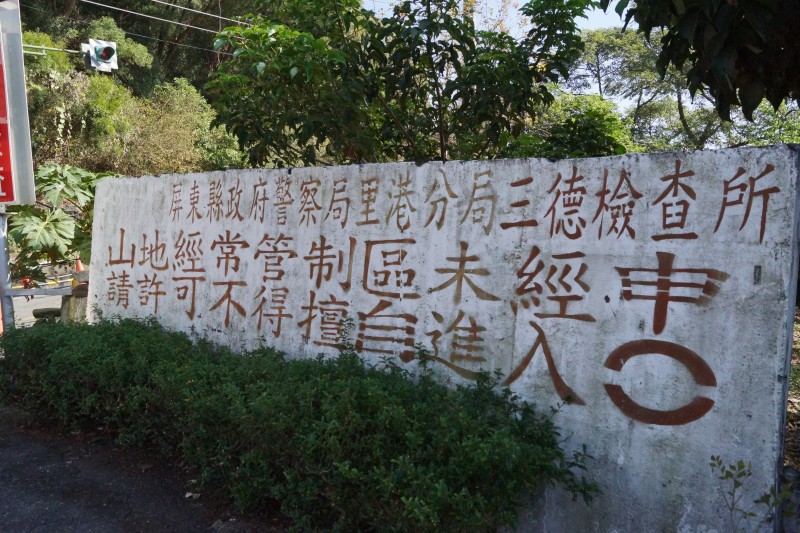 屏東縣政府警察局里港分局三德檢查所
山地經常管制區未經申
請許可不得擅自進入。